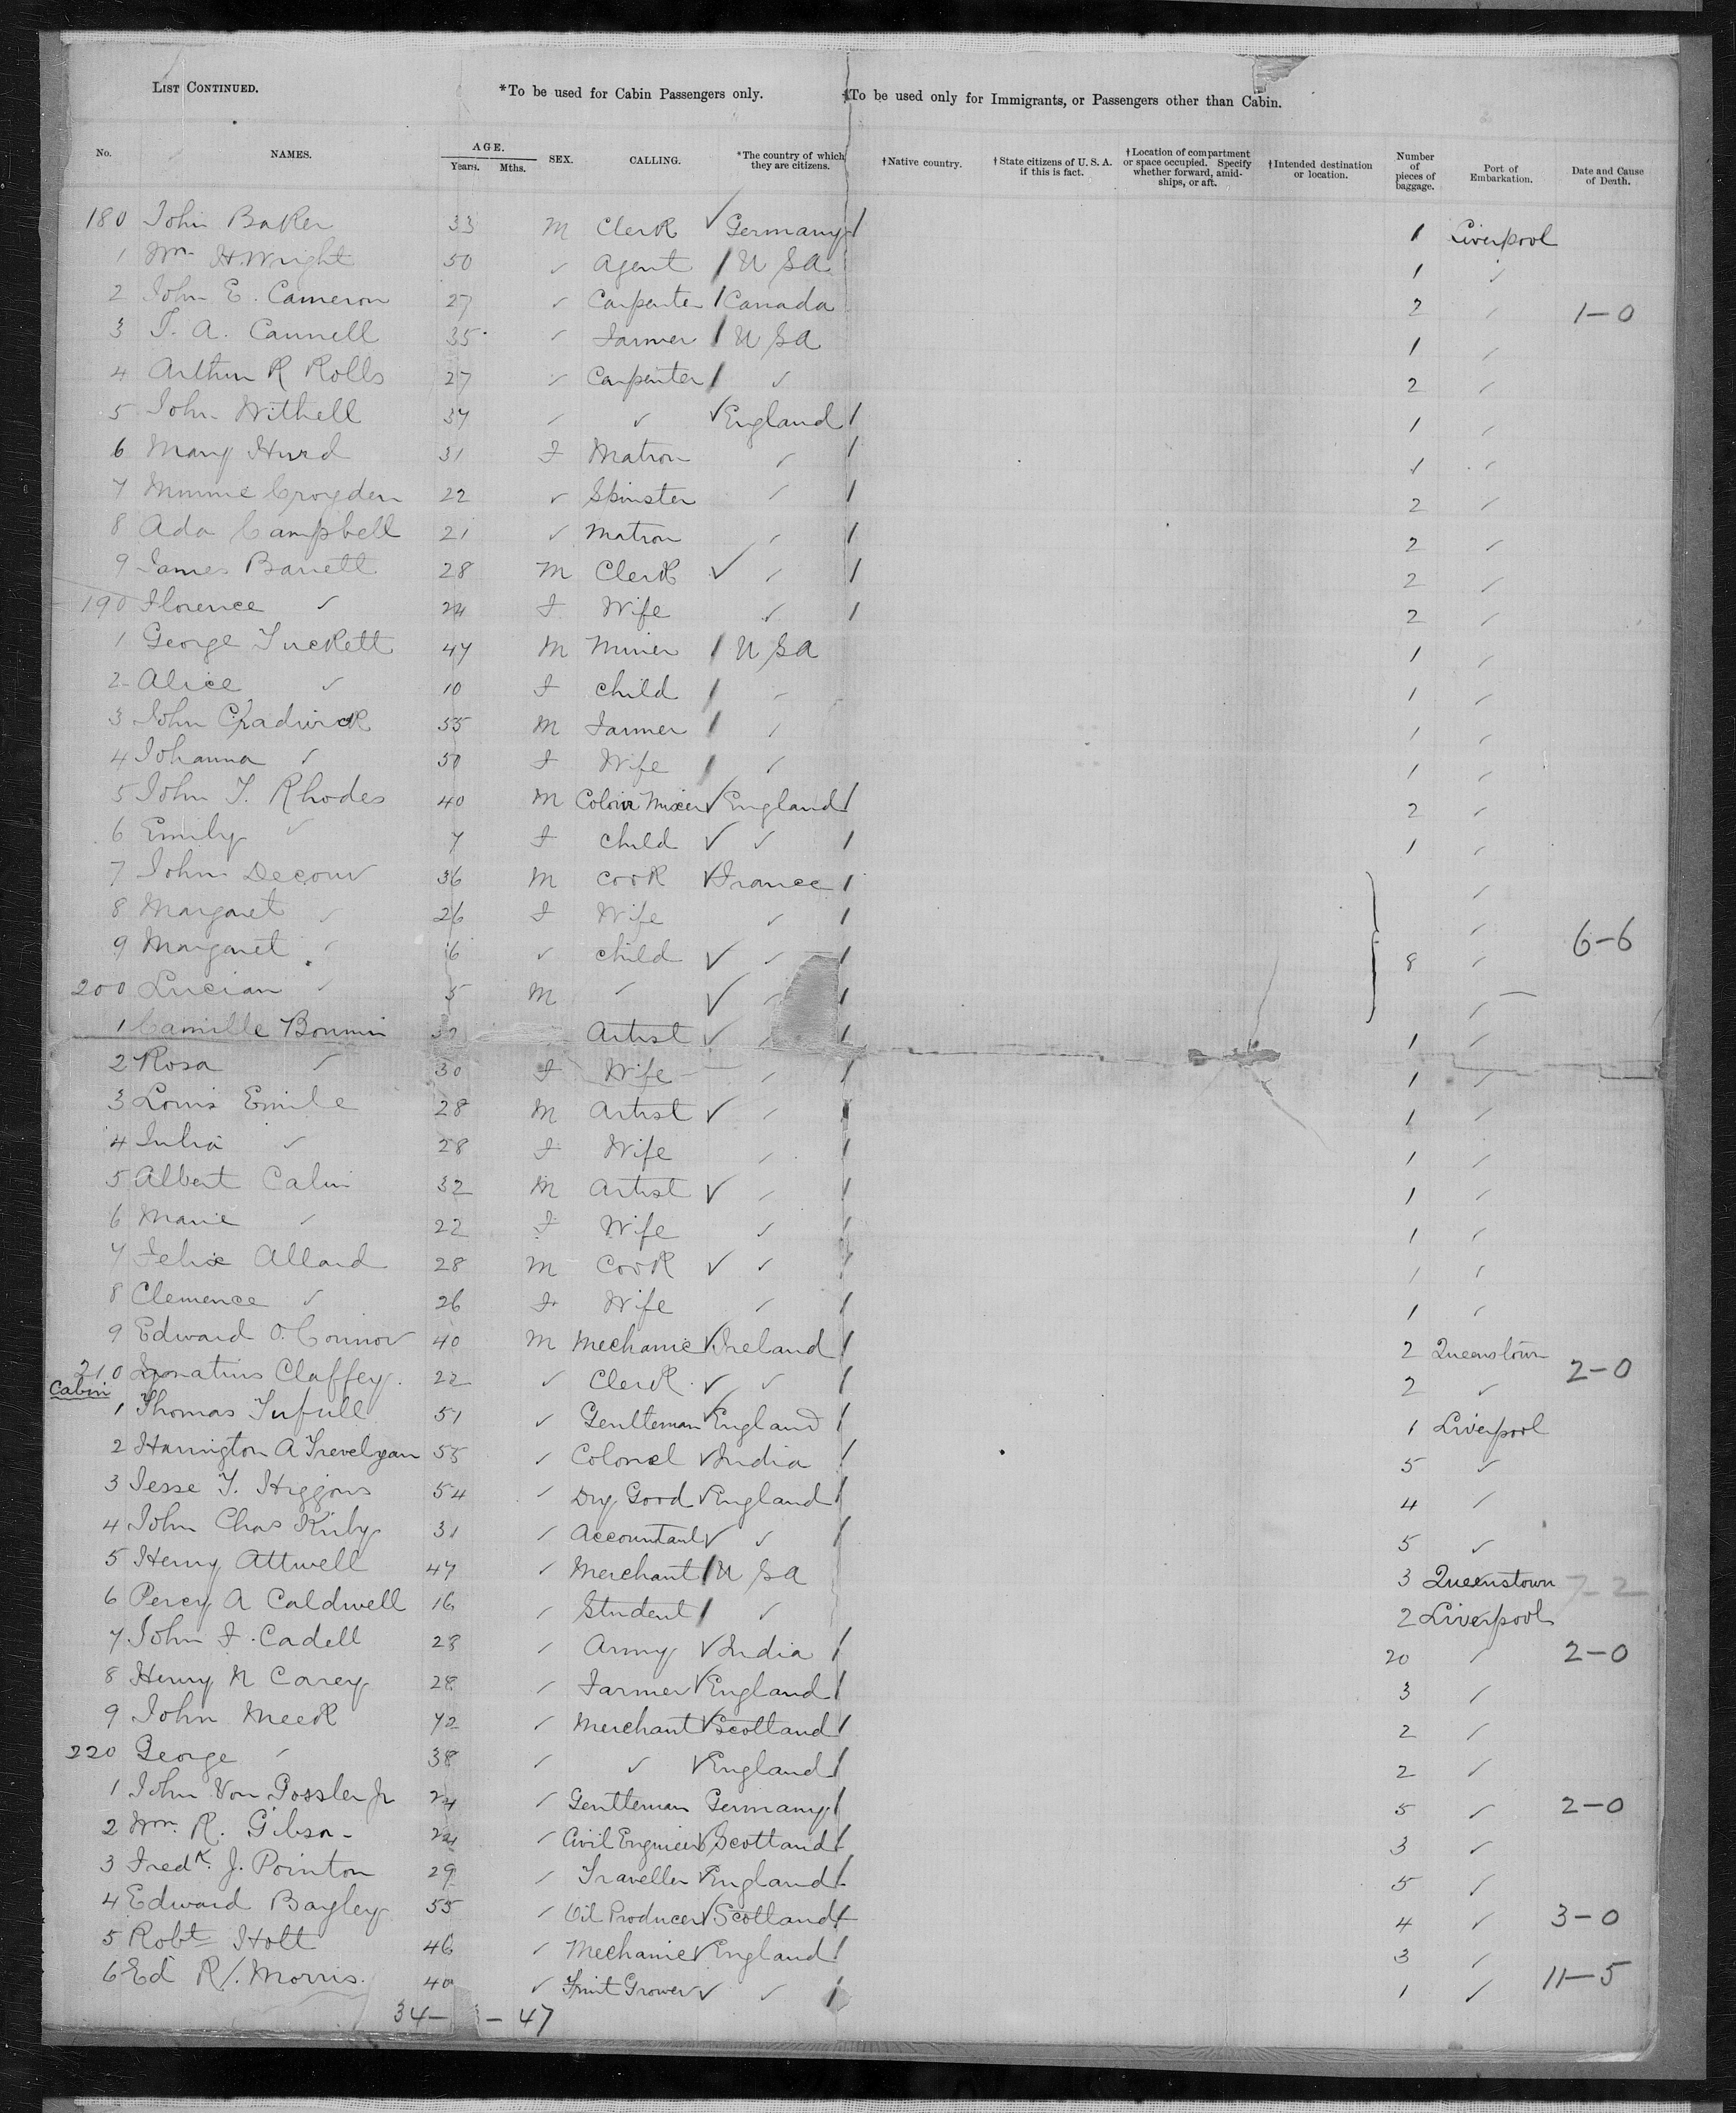 List Continued. *To be used for Cabin Passengers only. †To be used only for Immigrants, or Passengers other than Cabin.
No. NAMES. AGE. Years. Mths. SEX. CALLING. *The country of which they are citizens. †Native country. †State citizens of U. S. A. if this is fact. †Location of compartment or space occupied. Specify whether forward, amid-ships, or aft. †Intended destination or location. Number of pieces of baggage. Port of Embarkation. Date and Cause of Death.
180 John Baker 33 M Clerk ✓ Germany / 1 Liverpool
1 Wm. H. Wright 50 ✓ Agent / U S A 1 ✓
2 John E. Cameron 27 ✓ Carpenter / Canada 2 ✓ 1-0
3 T. A. Cannell 35 ✓ Farmer / U S A 1 ✓
4 Arthur R Rolls 27 ✓ Carpenter / ✓ 2 ✓
5 John Withell 37 ✓ ✓ ✓ England / 1 ✓
6 Mary Hurd 31 F Matron ✓ / 1 ✓
7 Minnie Croyden 22 ✓ Spinster ✓ / 2 ✓
8 Ada Campbell 21 ✓ Matron ✓ / 2 ✓
9 James Barrett 28 M Clerk ✓ ✓ / 2 ✓
190 Florence ✓ 24 F Wife ✓ / 2 ✓
1 George Tuckett 47 M Miner / U S A 1 ✓
2 Alice ✓ 10 F Child / ✓ 1 ✓
3 John Chadwick 55 M Farmer / ✓ 1 ✓
4 Johanna ✓ 50 F Wife / ✓ 1 ✓
5 John T. Rhodes 40 M Colour Mixer ✓ England / 2 ✓
6 Emily ✓ 7 F Child ✓ ✓ / 1 ✓
7 John Decour 36 M Cook ✓ France / ✓
8 Margaret ✓ 26 F Wife ✓ / ✓
9 Margaret ✓ 6 ✓ Child ✓ ✓ / 8 ✓ 6-6
200 Lucian ✓ 5 M ✓ ✓ ✓ / ✓
1 Camille Artist ✓ ✓ / 1 ✓
2 Rosa ✓ 30 F Wife ✓ / 1 ✓
3 Louis Emile 28 M Artist ✓ ✓ / 1 ✓
4 Julia ✓ 28 F Wife ✓ / 1 ✓
5 Albert Calin 32 M Artist ✓ ✓ / 1 ✓
6 Marie ✓ 22 F Wife ✓ / 1 ✓
7 Felix Allard 28 M Cook ✓ ✓ / 1 ✓
8 Clemence ✓ 26 F Wife ✓ / 1 ✓
9 Edward O'Connor 40 M Mechanic ✓ Ireland / 2 Queenstown
210 Ignatius Claffey 22 ✓ Clerk ✓ ✓ / 2 ✓ 2-0
Cabin
1 Thomas 51 ✓ Gentleman ✓ England / 1 Liverpool
2 Harrington A Trevelyan 55 ✓ Colonel ✓ India / 5 ✓
3 Jesse T. Higgons 54 ✓ Dry Good ✓ England / 4 ✓
4 John Chas Kirby 31 ✓ Accountant ✓ ✓ / 5 ✓
5 Henry Attwell 47 ✓ Merchant / U S A 3 Queenstown 7-2
6 Percy A Caldwell 16 ✓ Student / ✓ 2 Liverpool
7 John F. Cadell 28 ✓ Army ✓ India / 20 ✓ 2-0
8 Henry N Carey 28 ✓ Farmer ✓ England / 3 ✓
9 John Meek 72 ✓ Merchant ✓ Scotland / 2 ✓
220 George ✓ 38 ✓ ✓ ✓ England / 2 ✓
1 John Von Gossler Jr 24 ✓ Gentleman Germany / 5 ✓ 2-0
2 Wm. R. Gibson 24 ✓ Civil Engineer ✓ Scotland / 3 ✓
3 Fredk. J. Pointon 29 ✓ Traveller ✓ England / 5 ✓
4 Edward Bayley 55 ✓ Oil Producer ✓ Scotland / 4 ✓ 3-0
5 Robt Holt 46 ✓ Mechanic ✓ England / 3 ✓
6 Ed R. Morris 40 ✓ Fruit Grower ✓ ✓ / 1 ✓ 11-5
34- - 47